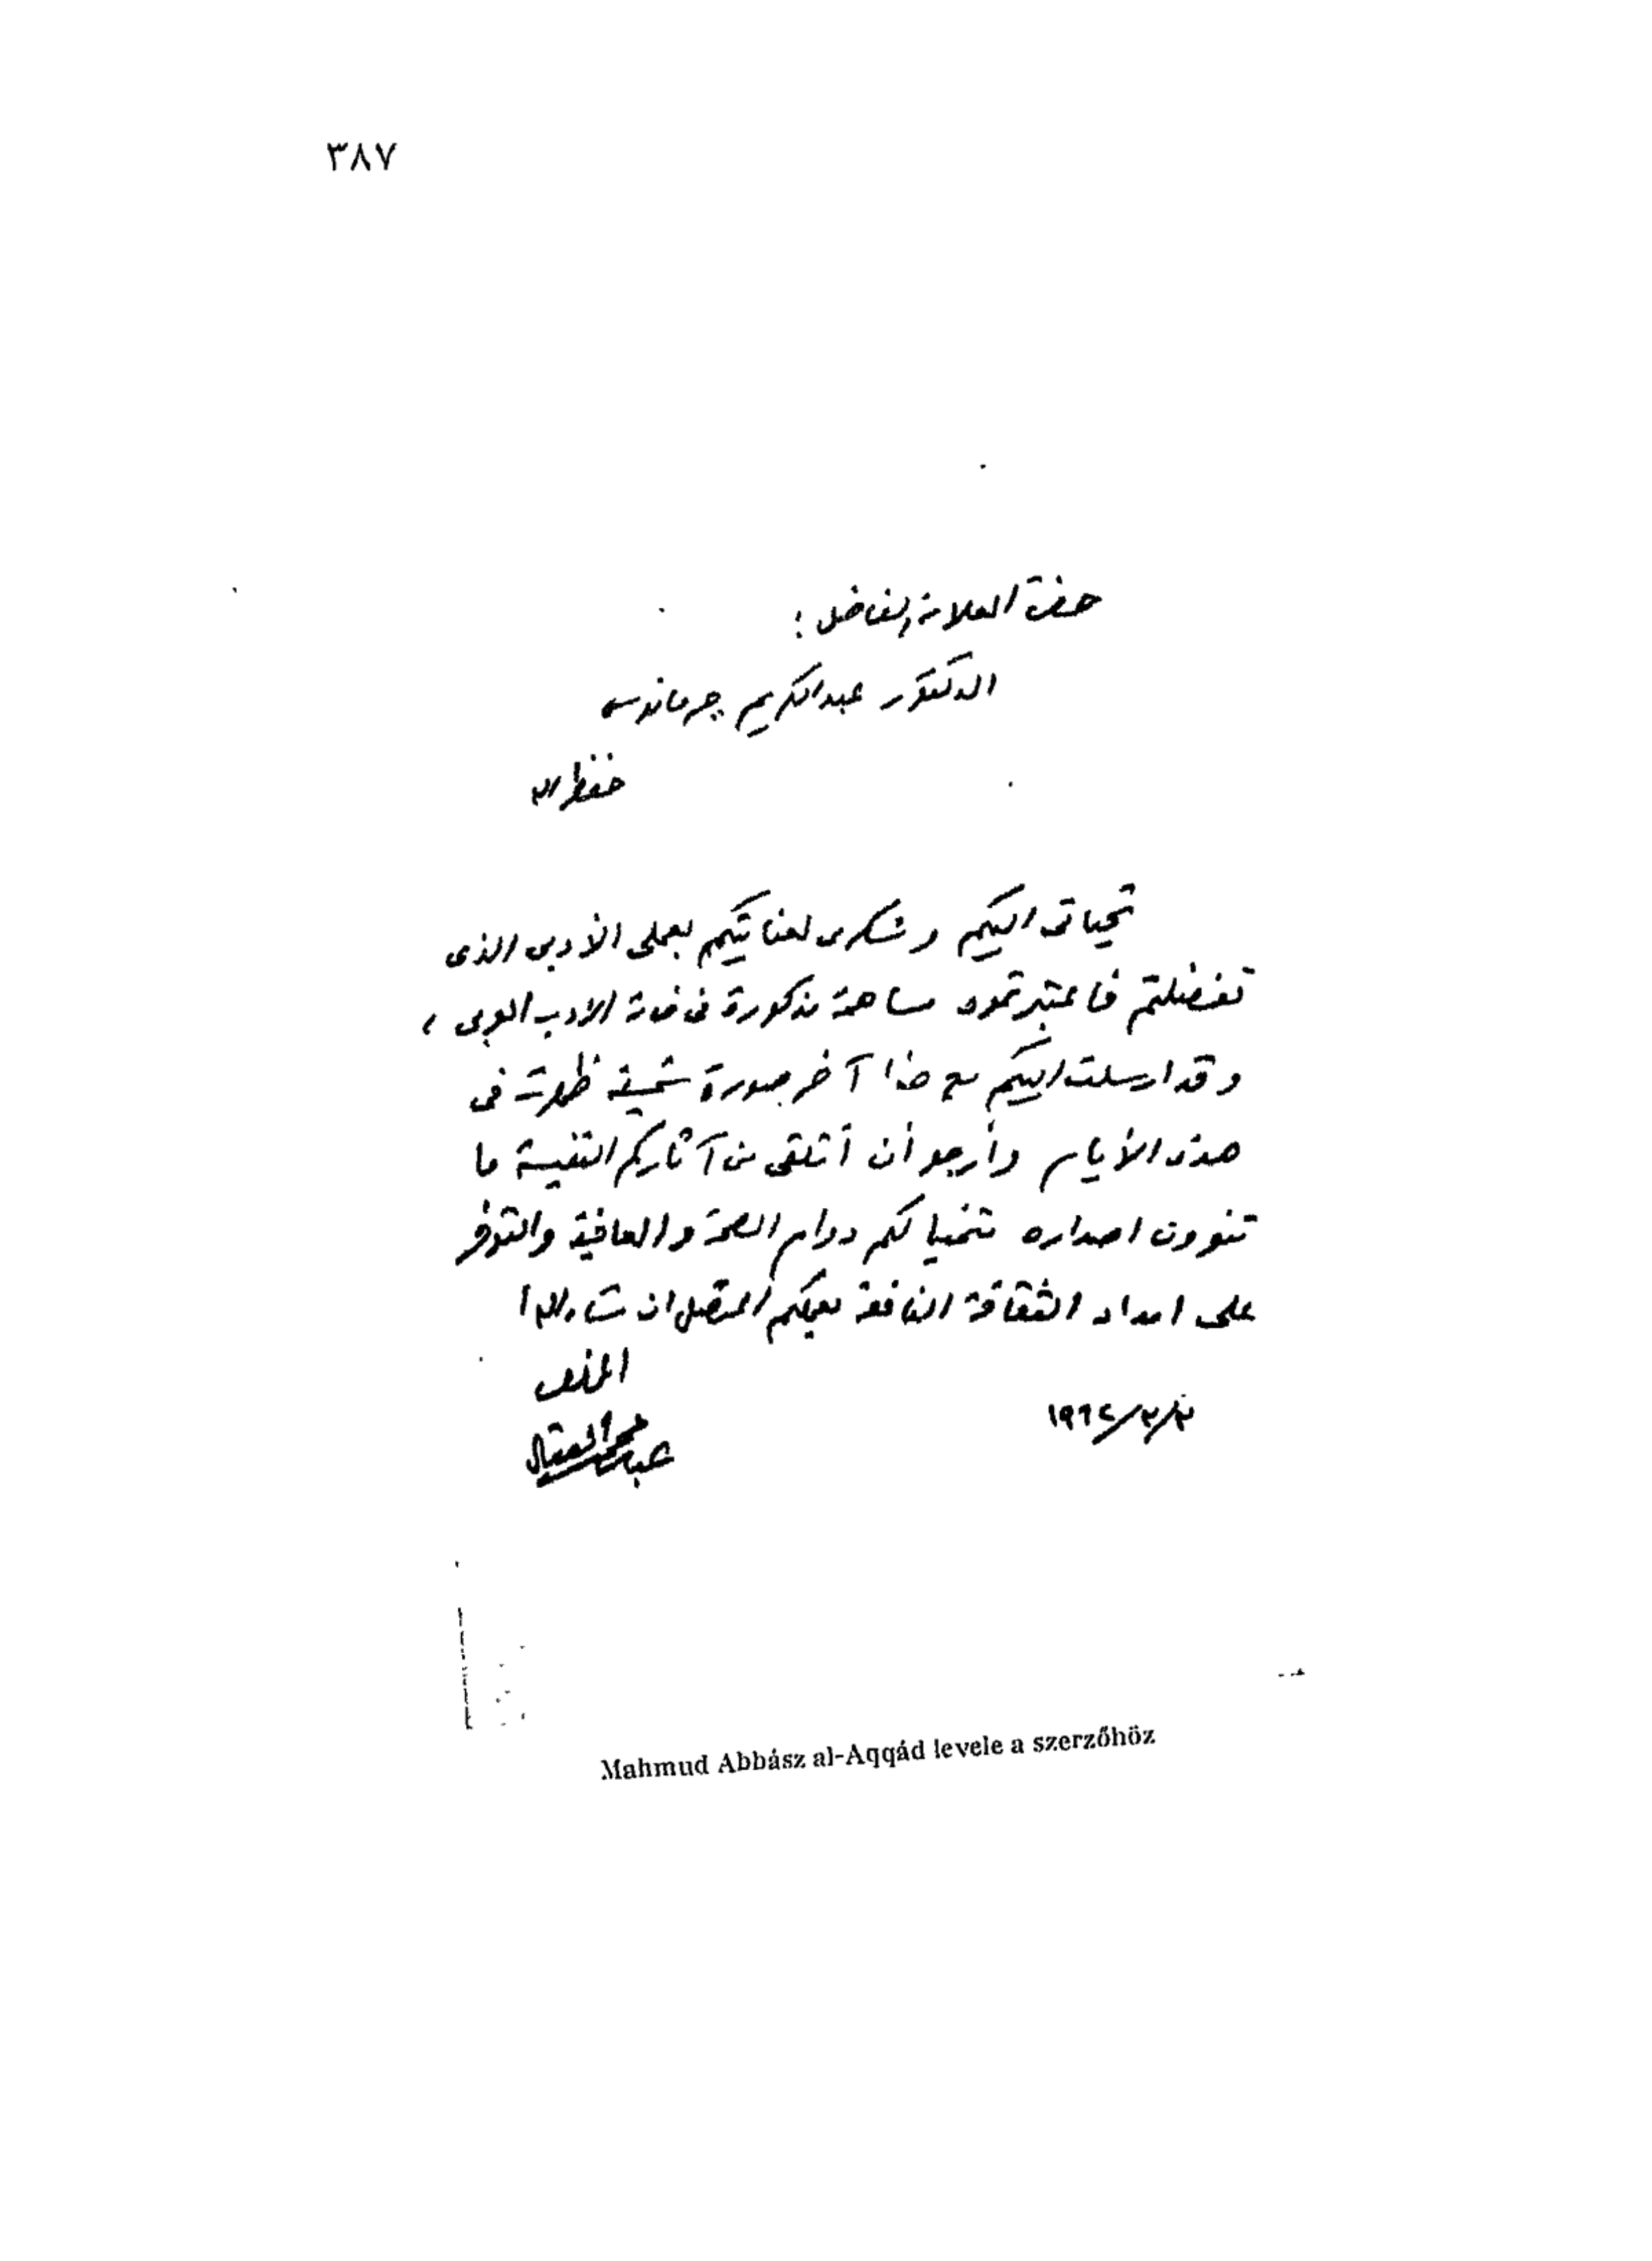 ٣٨٧
حضرة العلامة الفاضل :
الدكتور عبدالكريم جرمانوس
حفظه الله
تحياتى اليكم وشكرى لعنايتكم بعملى الأدبى الذى
تفضلتم فاعتبرتموه مساهمة مذكورة فى خدمة الادب العربى ،
وقد ارسلت اليكم مع هذا آخر صورة شمسية ظهرت فى
هذه الأيام وأرجو أن أتلقى من آثاركم النفيسة ما
تنوون اصداره متمنيا لكم دوام الصحة والعافية والتوفر
على امداد الثقافة النافعة بعملكم المتصل ان شاء الله
المخلص
عباس محمود العقاد
١٩٦٤/٢/
Mahmud Abbász al-Aqqád levele a szerzőhöz